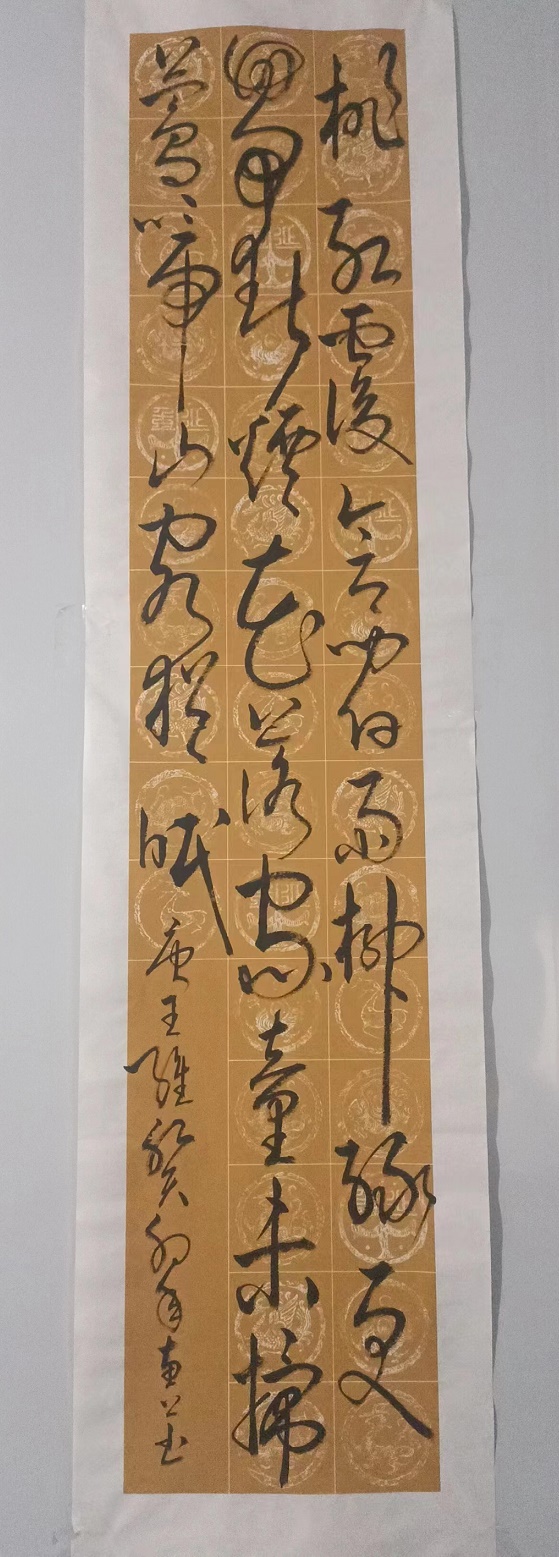 桃紅覆含宿雨柳綠更
帶朝煙花落家童未掃
鶯啼山客猶眠 唐王維 癸卯年